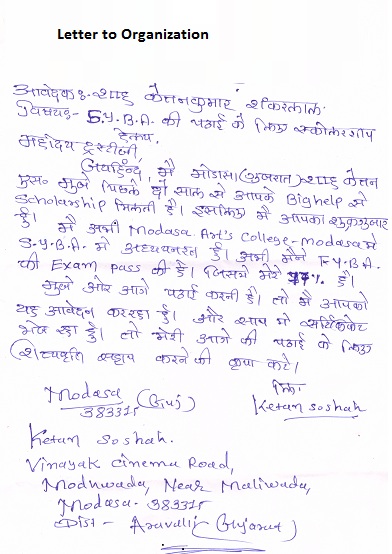 Letter to Organization
आवेदक :- शाह केतनकुमार शंकरलाल.
विषय:- S.Y.B.A. की पढाई के लिए स्कोलरशीप
हेतु.
महोदय ट्रस्टीजी,
जयहिन्द, मैं मोडासा (गुजरात) शाह केतन
एस० मुझे पिछले दो साल से आपके Bighelp से
Scholarship मिलती है। इसलिए मैं आपका शुक्रगुजार
हुँ। मैं अभी Modasa Art's College-Modasa में
S.Y.B.A. में अध्ययनरत हुँ। अभी मैंने F.Y.B.A.
की Exam pass की है। जिसमें मेरे 77% है।
मुझे और आगे पढाई करनी है। तो मैं आपको
यह आवेदन कर रहा हुँ। और साथ में सर्टिफिकेट
भेज रहा हुँ। तो मेरी आगे की पढाई के लिए
शिष्यवृत्ति सहाय करने की कृपा करे।
Modasa (Guj)
383315
लि.
Ketan soshah
Ketan soshah.
Vinayak cinema Road,
Modhwada, Near Maliwada,
Modasa- 383315
Dist - Aravalli (Gujarat)